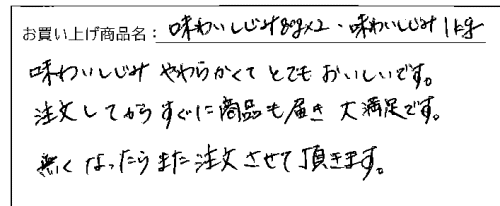 お買い上げ商品名：味わいしじみ80g×2・味わいしじみ1kg
味わいしじみ やわらかくて とても おいしいです。
注文してからすぐに商品も届き 大満足です。
無くなったらまた注文させて頂きます。